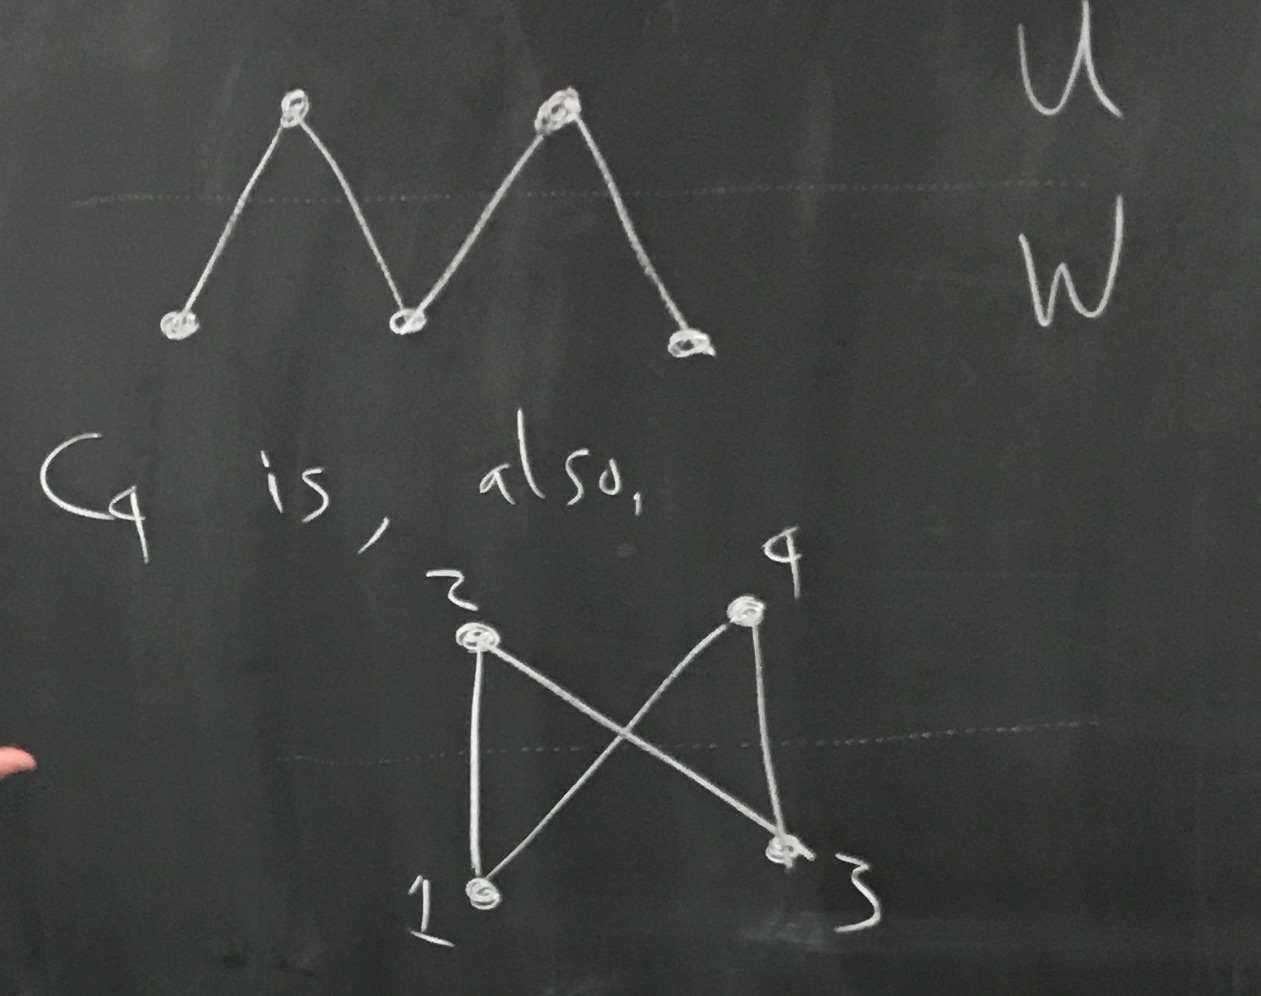 U
W
C4 is, also,
2 4
1 3